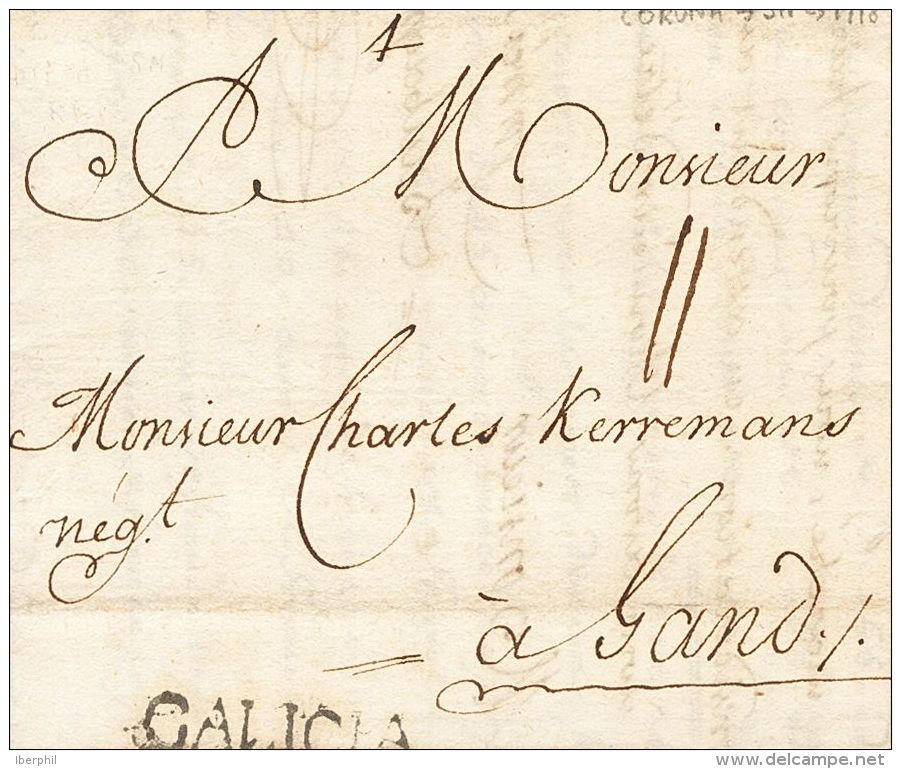 A Monsieur
Monsieur Charles Kerremans
négt.
à Gand./.
GALICIA
Iberphil
www.delcampe.net